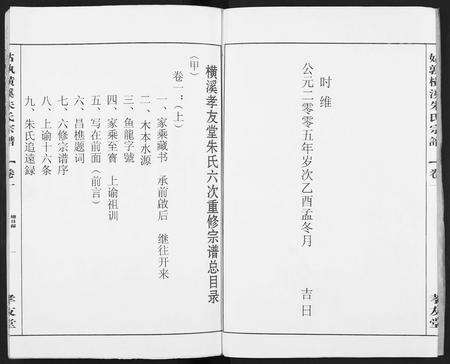 姑孰横溪朱氏宗谱 卷一
孝友堂
时维
公元二零零五年岁次乙酉孟冬月 吉日
横溪孝友堂朱氏六次重修宗谱总目录
（甲）
卷一：（上）
一、家乘藏书 承前啟后 继往开来
二、木本水源
三、鱼龍字號
四、家乘至寶 上谕祖训
五、写在前面（前言）
六、昌樵题词
七、六修宗谱序
八、上谕十六条
九、朱氏追遠録
姑孰横溪朱氏宗谱 卷一
总目录
一
孝友堂